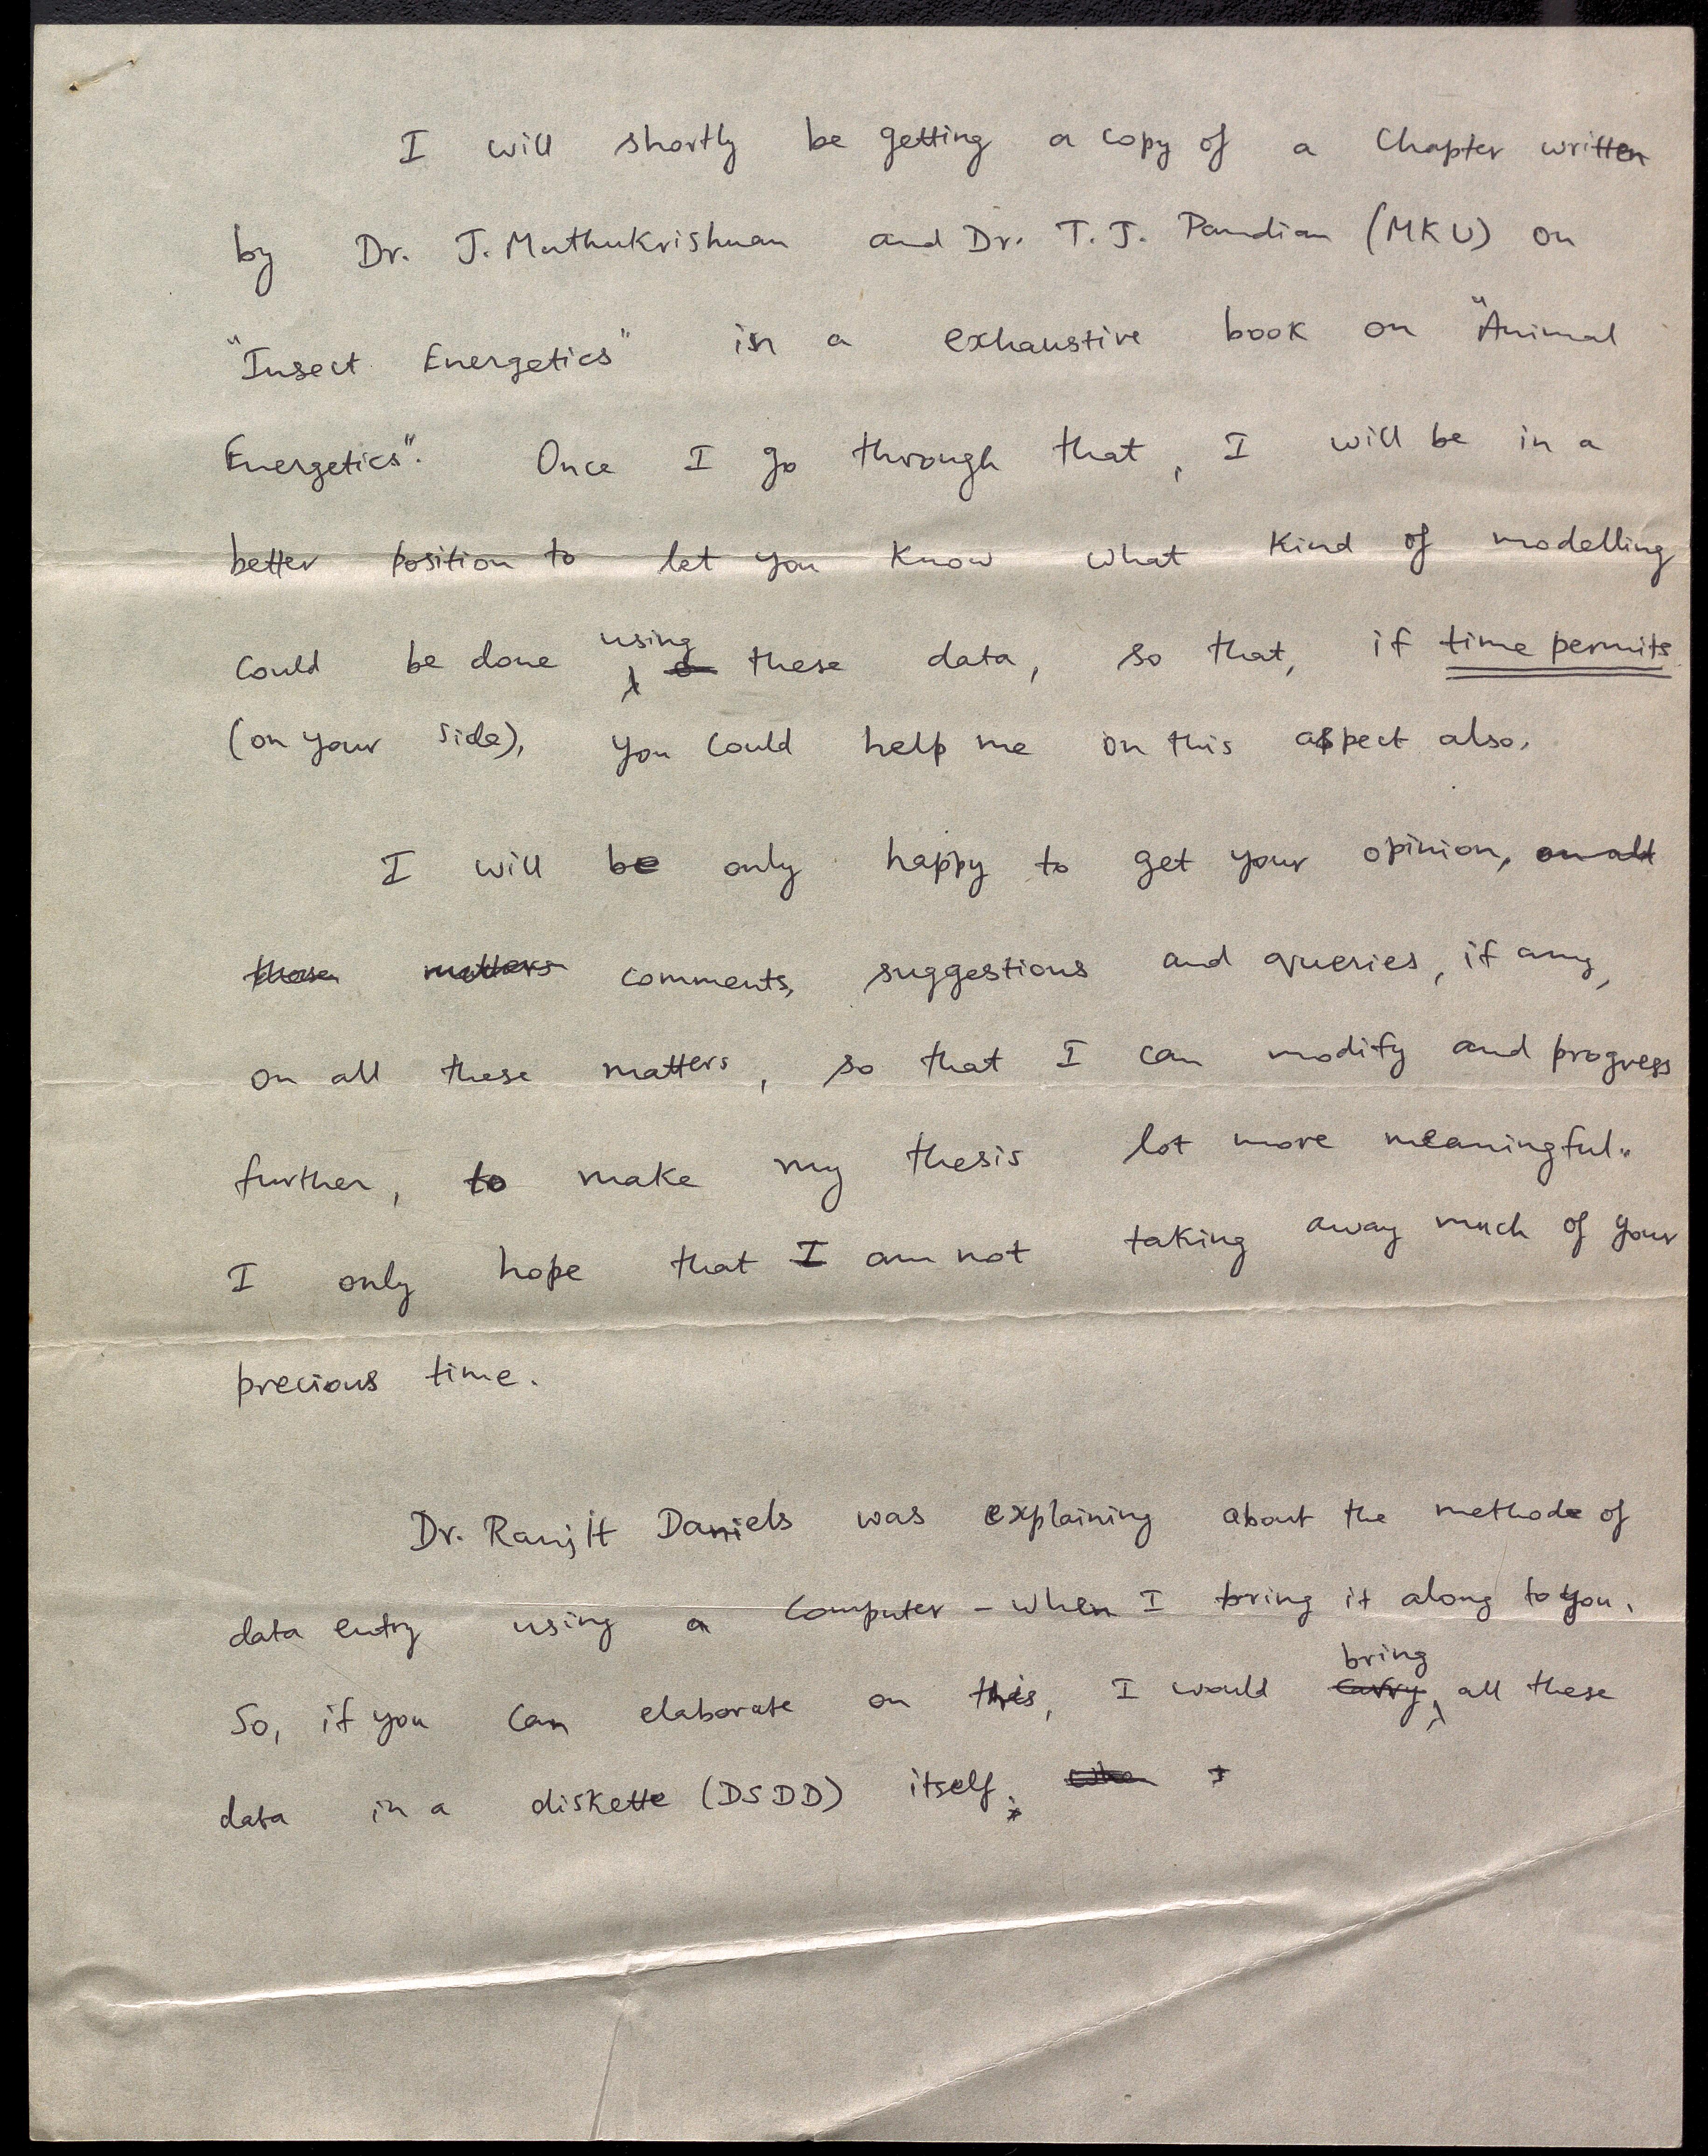 I will shortly be getting a copy of a Chapter written
by Dr. J. Muthukrishnan and Dr. T. J. Pandian (MKU) on
"Insect Energetics" in a exhaustive book on "Animal
Energetics". Once I go through that, I will be in a
better position to let you know what kind of modelling
could be done using these data, so that, if time permits
(on your side), you could help me on this aspect also.
I will be only happy to get your opinion, on all
these matters comments, suggestions and queries, if any,
on all these matters, so that I can modify and progress
further, to make my thesis lot more meaningful.
I only hope that I am not taking away much of your
precious time.
Dr. Ranjit Daniels was explaining about the methode of
data entry using a Computer - when I bring it along to you.
So, if you can elaborate on this, I would carry bring all these
data in a diskette (DSDD) itself.